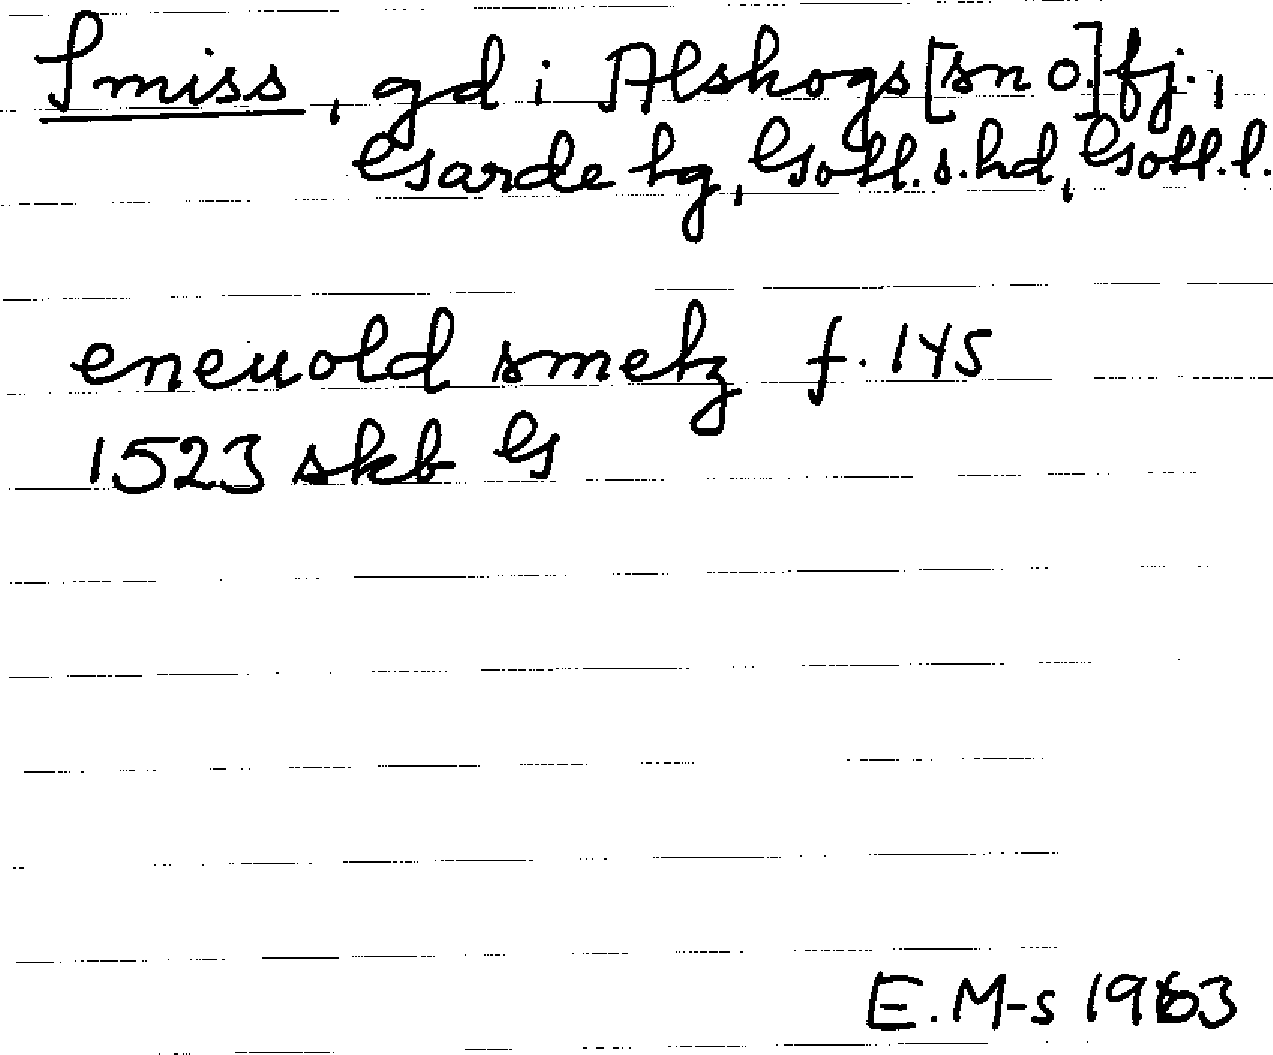 Smiss, gd i Alskogs [sn o.] fj.,
Garde tg, Gotl. s. hd, Gotl. l.
eneuold smetz f. 145
1523 skb G
E. M-s 1963